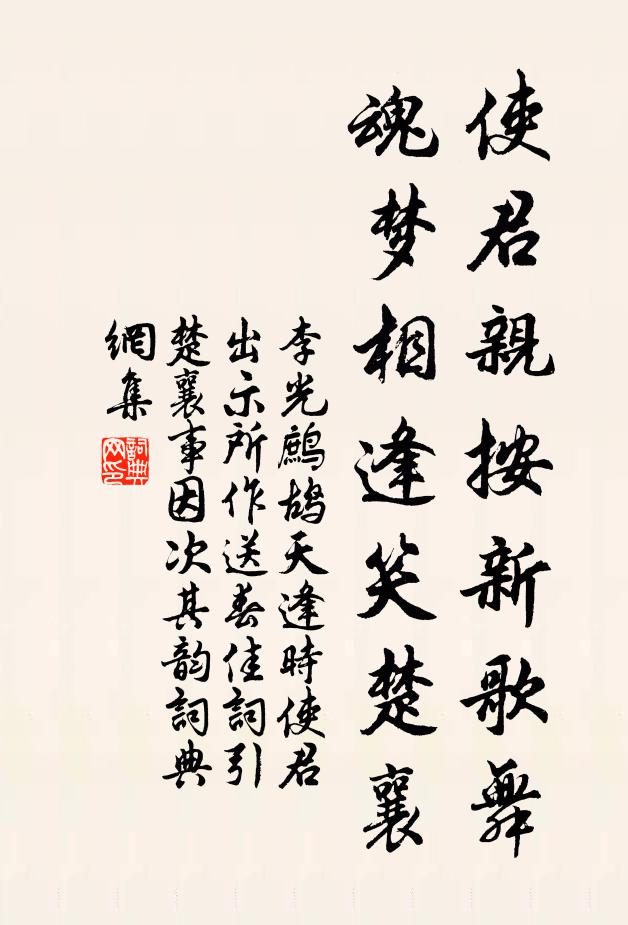 使君親按新歌舞
魂梦相逢笑楚襄
李光鷓鴣天逢時使君
出示所作送春佳詞引
楚襄事因次其韵詞典
網集
詞典
网印